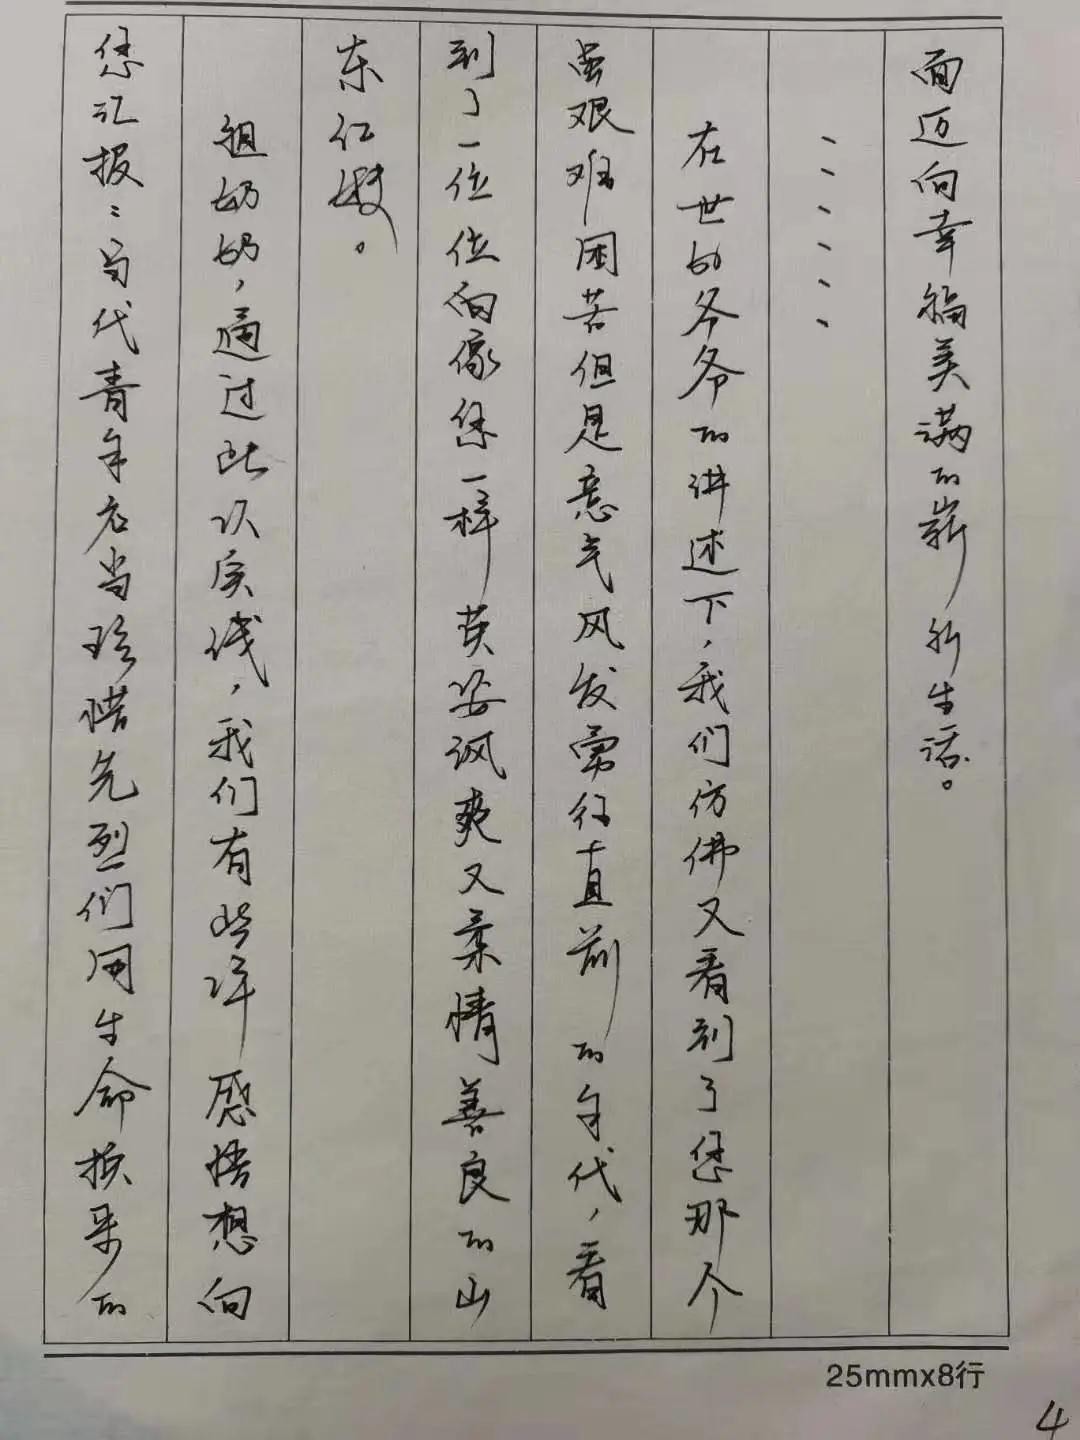 面迈向幸福美满的崭新生活。
、、、、、、
在世的爷爷的讲述下，我们仿佛又看到了您那个
虽艰难困苦但是意气风发勇往直前的年代，看
到了一位位向像您一样英姿飒爽又柔情善良的山
东红嫂。
祖奶奶，通过此次实践，我们有些许感悟想向
您汇报：当代青年应当珍惜先烈们用生命换来的
25mmx8行
4